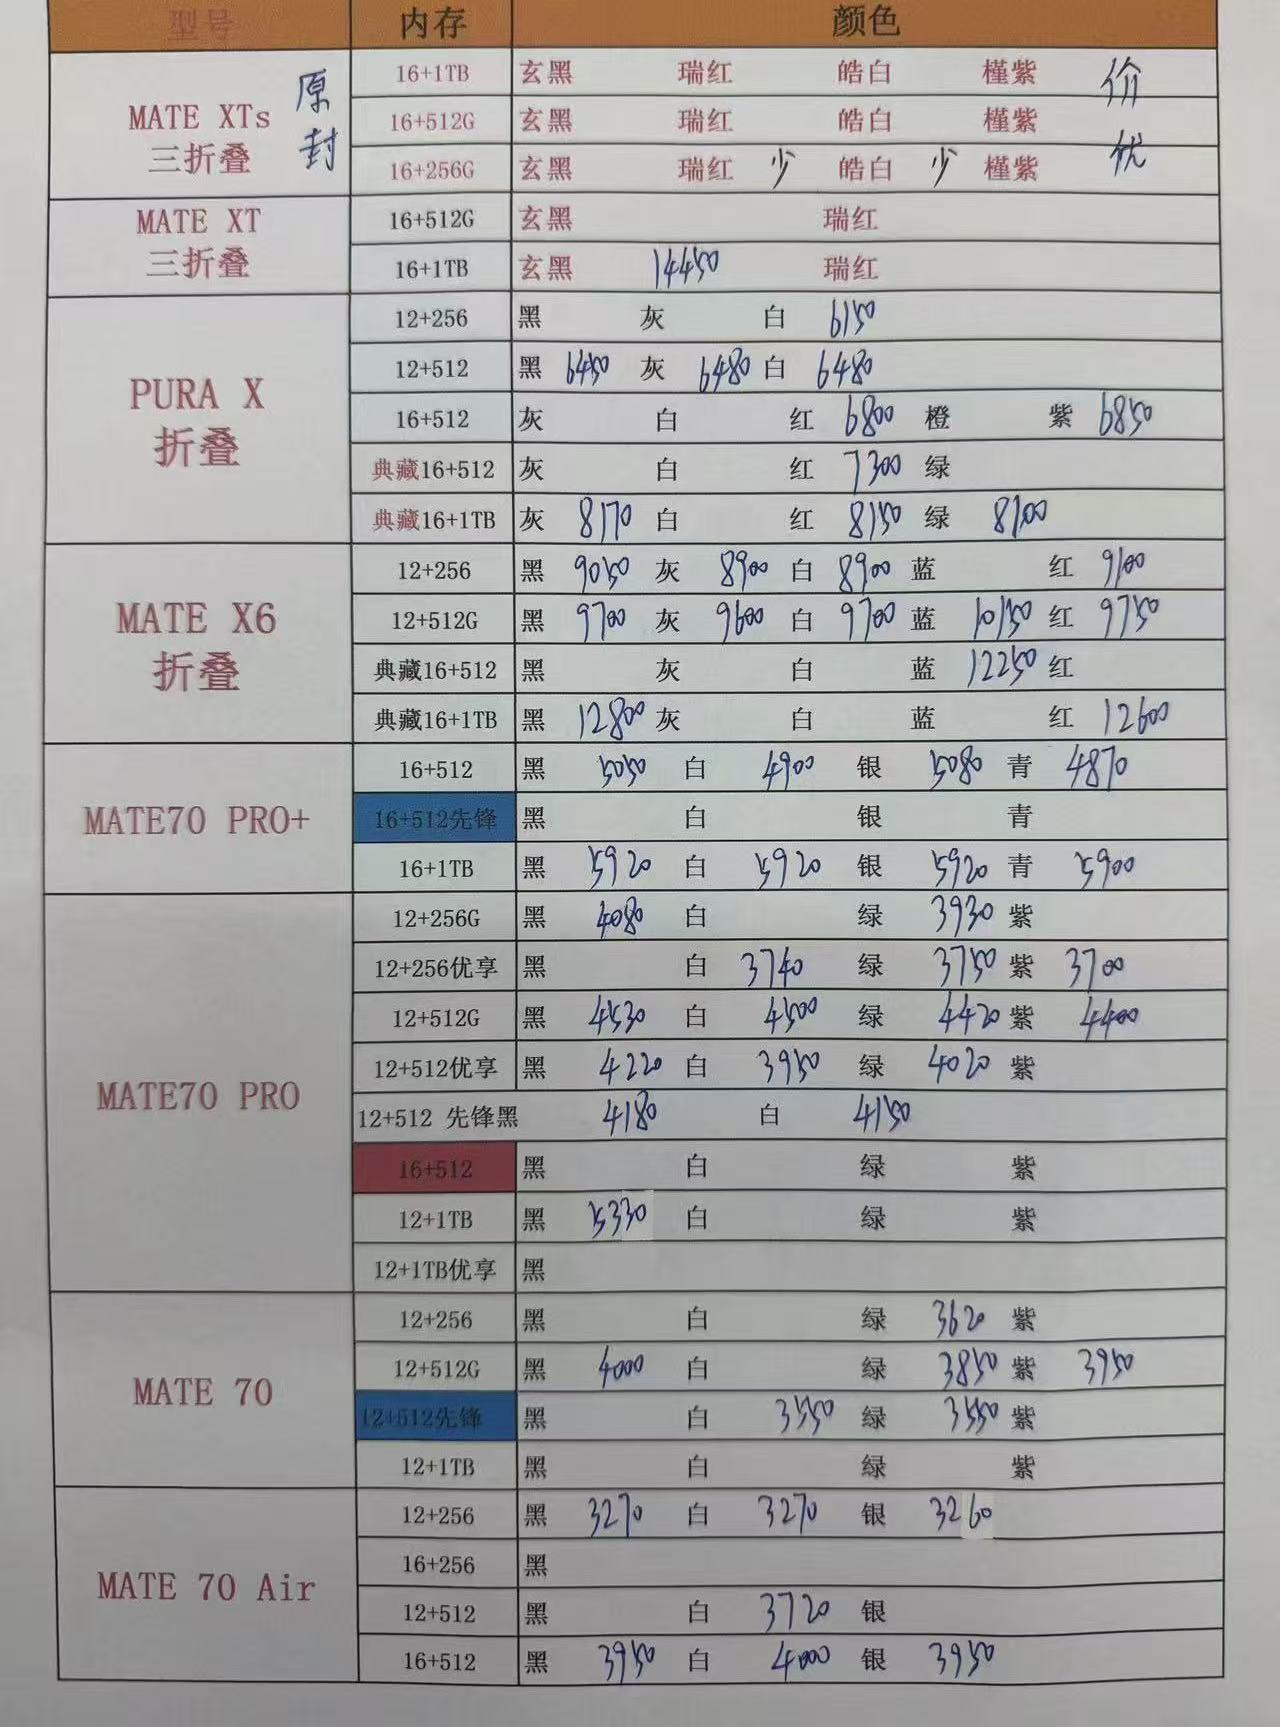 型号 内存 颜色
16+1TB 玄黑 瑞红 皓白 槿紫 价
MATE XTs 原 16+512G 玄黑 瑞红 皓白 槿紫
三折叠 封 16+256G 玄黑 瑞红 少 皓白 少 槿紫 优
MATE XT 16+512G 玄黑 瑞红
三折叠 16+1TB 玄黑 14450 瑞红
12+256 黑 灰 白 6150
12+512 黑 6450 灰 6480 白 6480
PURA X 16+512 灰 白 红 6800 橙 紫 6850
折叠 典藏16+512 灰 白 红 7300 绿
典藏16+1TB 灰 8170 白 红 8150 绿 8100
12+256 黑 9050 灰 8900 白 8900 蓝 红 9100
MATE X6 12+512G 黑 9700 灰 9600 白 9700 蓝 10150 红 9750
折叠 典藏16+512 黑 灰 白 蓝 12250 红
典藏16+1TB 黑 12800 灰 白 蓝 红 12600
16+512 黑 5050 白 4900 银 5080 青 4870
MATE70 PRO+ 16+512先锋 黑 白 银 青
16+1TB 黑 5920 白 5920 银 5920 青 5900
12+256G 黑 4080 白 绿 3930 紫
12+256优享 黑 白 3740 绿 3750 紫 3700
12+512G 黑 4530 白 4500 绿 4420 紫 4400
12+512优享 黑 4220 白 3950 绿 4020 紫
MATE70 PRO 12+512 先锋黑 4180 白 4150
16+512 黑 白 绿 紫
12+1TB 黑 5330 白 绿 紫
12+1TB优享 黑
12+256 黑 白 绿 3620 紫
12+512G 黑 4000 白 绿 3850 紫 3950
MATE 70 12+512先锋 黑 白 3550 绿 3550 紫
12+1TB 黑 白 绿 紫
12+256 黑 3270 白 3270 银 3260
16+256 黑
MATE 70 Air 12+512 黑 白 3720 银
16+512 黑 3950 白 4000 银 3950